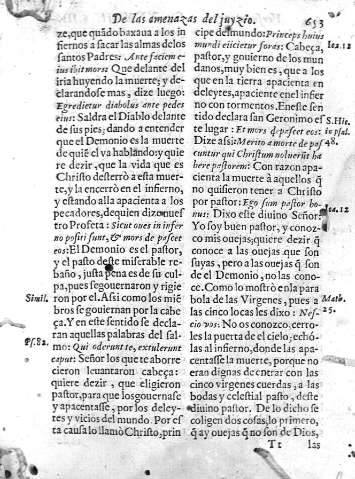 De las amenazas del juyzio.
653
ze, que quãdo baxaua a los in-
fiernos a sacar las almas de los
santos Padres: Ante faciem e-
ius ibit mors: Que delante del
iria huyendo la muerte; y de-
clarandose mas, dize luego:
Egredietur diabolus ante pedes
eius: Saldra el Diablo delante
de sus pies; dando a entender
que el Demonio es la muerte
de quiẽ el va hablãdo; y quie
re dezir, que la vida que es
Christo desterrò a esta muer-
te, y la encerrò en el infierno,
y estando alla apacienta a los
pecadores, de quien dize nues
tro Profeta: Sicut oues in infer
no positi sunt, & mors depascet
eos: El Demonio es el pastor,
y el pasto deste miserable re-
baño, justa pena es de su cul-
pa, pues se gouernaron y rigie
Simil.
ron por el. Assi como los miẽ
bros se gouiernan por la cabe
ça. Y en este sentido se decla-
ran aquellas palabras del sal-
Ps. 82.
mo: Qui oderunt te, extulerunt
caput: Señor los que te aborre
cieron leuantaron cabeça:
quiere dezir, que eligieron
pastor, para que los gouernase
y apacentasse, por los deley-
tes y vicios del mundo. Por es
ta causa lo llamò Christo, prin
cipe del mundo: Princeps huius
mundi eiicietur foras: Cabeça,
Ioa. 12
pastor, y gouierno de los mun
danos, muy bien es, que a los
que en la tierra apacienta en
deleytes, apaciente en el infier
no con tormentos. En este sen
tido declara san Geronimo es
S. Hie.
te lugar: Et mors depascet eos:
in psal.
Dize assi: Merito a morte depas
48.
cuntur qui Christum noluerũt ha
bere pastorem: Con razon apa-
cienta la muerte à aquellos q̃
no quisieron tener a Christo
por pastor: Ego sum pastor bo-
nus: Dixo este diuino Señor:
Ioa. 12
Yo soy buen pastor, y conoz-
co mis ouejas; quiere dezir q̃
conoce a las ouejas que son
suyas, pero a las ouejas q̃ son
de el Demonio, no las cono-
ce. Como lo mostrò en la para
bola de las Virgenes, pues a
Math.
las cinco locas les dixo: Nes-
25.
cio vos: No os conozco, cerro-
les la puerta del cielo; echò-
las al infierno, donde las apa-
centasse la muerte, porque no
eran dignas de entrar con las
cinco virgenes cuerdas, a las
bodas y celestial pasto, deste
diuino pastor. De lo dicho se
coligen dos cosas; lo primero,
q̃ ay ouejas q̃ no son de Dios,
Tt
las